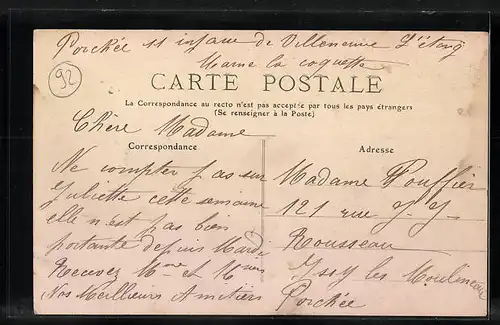 Porchée 11 infame de Villeneuve l'étang
Marne la coquette
92
CARTE POSTALE
La Correspondance au recto n'est pas acceptée par tous les pays étrangers
(Se renseigner à la Poste)
Chère Madame
Correspondance
Ne compter pas sur
Juliette cette semaine
elle n'est pas bien
portante depuis Mardi
Recevez Mme et
Nos Meilleurs Amitiers
Adresse
Madame Pouffier
121 rue J. J.
Rousseau
Issy les Moulineau
Porchée